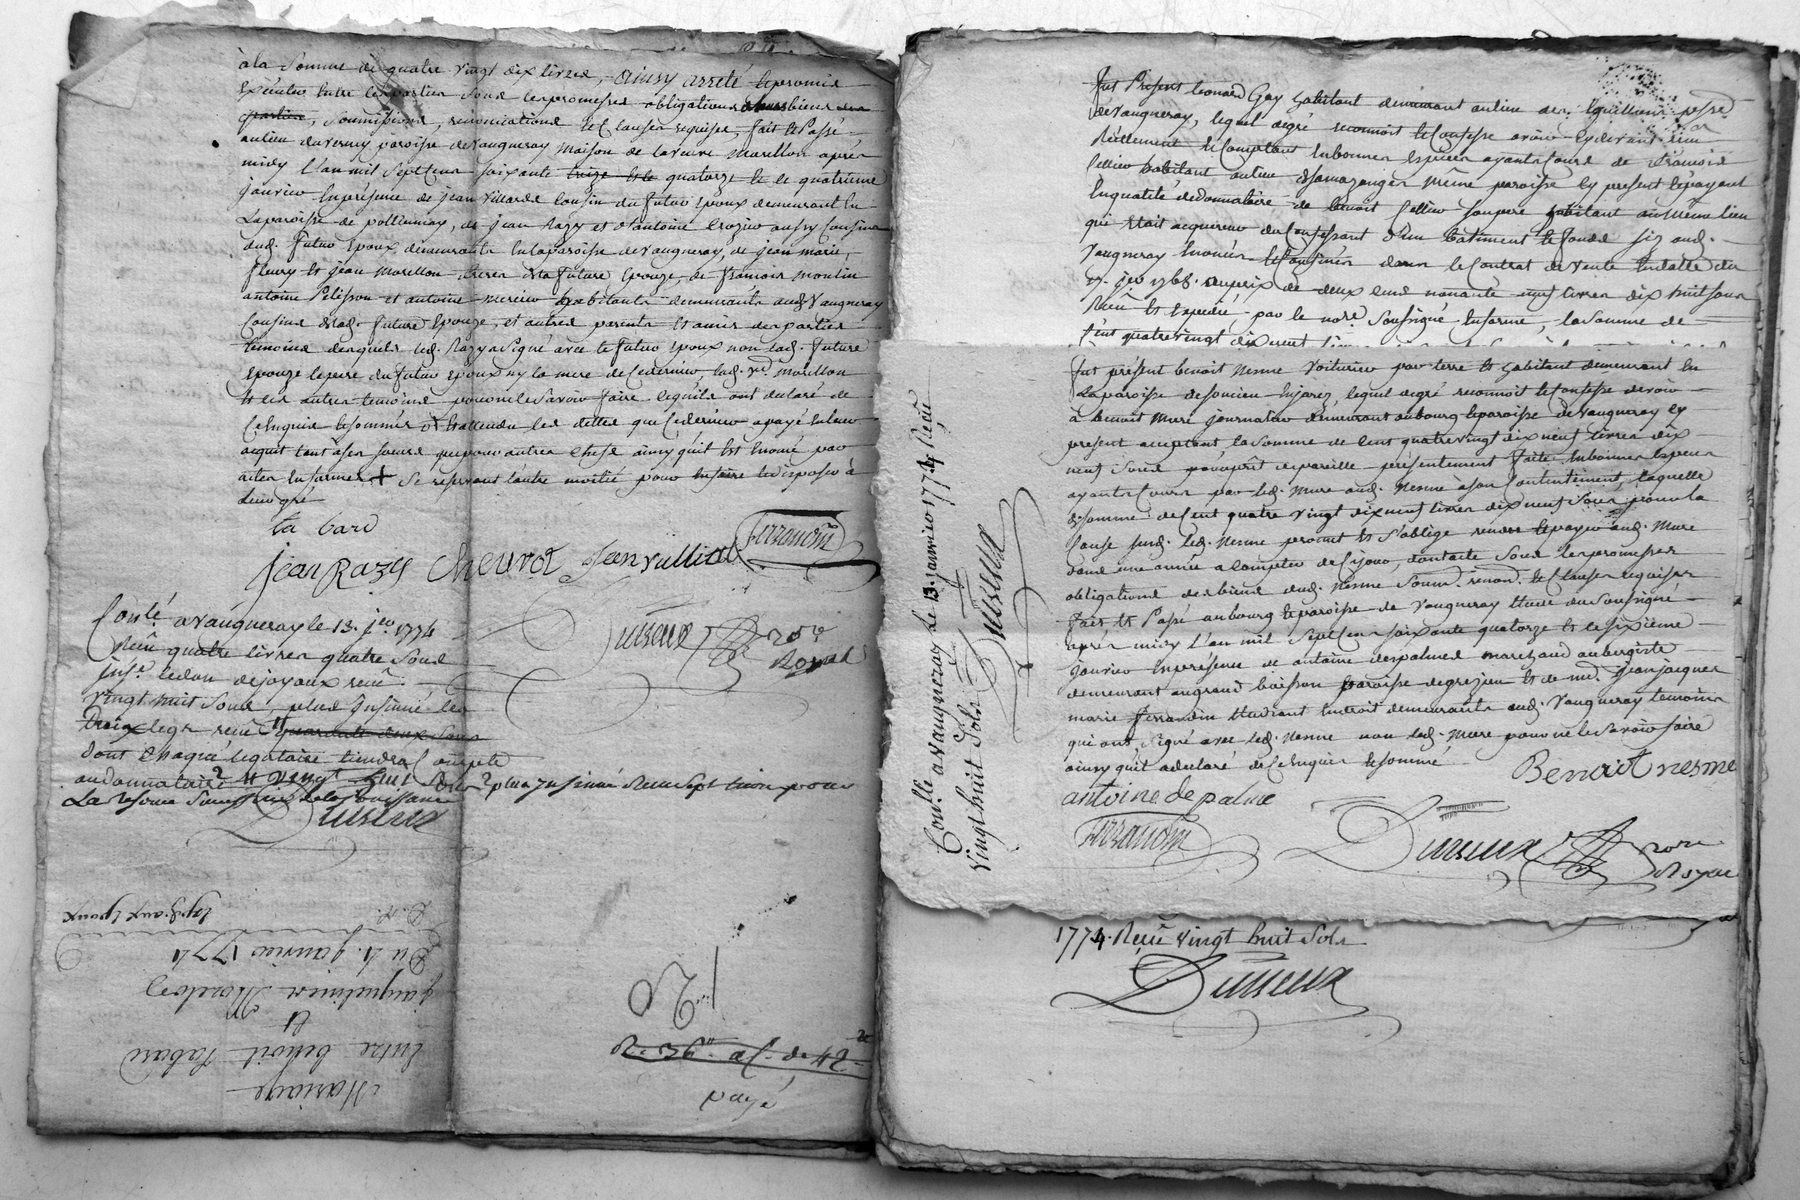 à la Somme de quatre vingt dix livres, Ainsy arreté et promis
Executer entre les parties sous les promesses obligations des biens des
parties, soumissions, renonciations et Clauses requises, fait et Passé
au lieu du paroisse de Vaugneray Maison de la veuve Morillon après
midy l'an mil Sept Cens soixante treize et le quatorze et le quatrieme
janvier En présence de jean Villards Cousin du futur Epoux demeurant En
La paroisse de pollionnay, de jean Razy et d'antoine Crozier aussy Cousins
aud. futur Epoux demeurants En la paroisse de Vaugneray, de jean marie,
fleury et jean Morillon freres de la future Epouze, de francois moulin
antoine Pelisson et antoine mercier habitants demeurants aud. Vaugneray
Cousins de lad. future Epouze, et autres parents et amis des parties
temoins desquels led. Razy a Signé avec le futur Epoux non lad. future
Epouze le pere du futur Epoux ny la mere de Ce dernier, lad. ve. Morillon
et les autres temoins pour ne le Savoir faire lequels ont declaré de
Ce Enquis et sommés et attendu les dettes que Ce dernier a payé
acquit tant à ses soeurs que pour autres Chefs ainsy qu'il Est Enoncé par
actes En formes + Se reservant l'autre moitié pour En faire et disposer à
Leur gré
ta bard
jean Razy Cheuvot Jean Vulliat Ferrandin
Dusseux nore Royal
Conlé a Vaugneray le 13. jer 1774
Reçu quatre livres quatre Sous
Ins. le don de joyaux reçu
Vingt huit Sous, plus Insinué les
Trois legs reçu quarante deux Sous
dont Chaque legataire tiendra Compte
au donnataire et Vingt huit Sols plus Insinué Reçu Sept livres pour
La reserve de la jouissance
Dusseux
Mariage
Entre benoit Tabard
Et
jaquemine Morillon
Du 4. janvier 1774
Exp. d. aux Epoux
R. 36 a C. de 42
payé
fut Present Leonard Gay habitant demeurant au lieu des psse.
de Vaugneray, lequel de gré reconnoit et Confesse avoir Cy devant reçu
Réellement et Comptant En bonnes Especes ayants Cours de francois
Cellier habitant au lieu même paroisse Cy present et payant
En qualité de donnataire de benoit Cellier Son pere habitant au même lieu
qui Etait acquereur du Confessant d'un batiment et fonds Sis aud.
Vaugneray Enoncés et Confinés dans le Contrat de Vente En datte du
17. jer 1768. au prix de deux Cens nonante neuf livres dix huit Sous
Reçu et Expedié par le nore. Soussigné En forme, la Somme de
Cent quatre vingt dix neuf
fut présent benoit Nesme Voiturier par terre et habitant demeurant En
La paroisse de Soucieu En jarez, lequel de gré reconnoit et Confesse devoir
à benoit Mure journalier demeurant au bourg et paroisse de Vaugneray Cy
present acceptant, la Somme de Cent quatre vingt dix neuf livres dix
neuf Sous pour prêt de pareille présentement faite En bonnes Especes
ayants Cours par led. Mure aud. Nesme à Son Contentement, laquelle
d. Somme de Cent quatre Vingt dix neuf livres dix neuf Sous pour la
Cause susd. led. Nesme promet et s'oblige rendre et payer aud. Mure
dans une année a Compter de Ce jour, dont acte Sous les promesses
obligations des biens dud. Nesme Soum. renon. et Clauses requises
fait et Passé au bourg et paroisse de Vaugneray Etude du Soussigné
après midy l'an mil Sept Cens soixante quatorze et le sixieme
Janvier En présence de antoine despalmes marchand aubergiste
demeurant au grand buisson paroisse de grezieu et de me. jean jacques
marie ferrandin Etudiant En droit demeurants aud. Vaugneray temoins
qui ont Signé avec led. Nesme non led. Mure pour ne le Savoir faire
ainsy qu'il a declaré de Ce Enquis et Sommé
Benoit nesme
antoine de palme
Ferrandin
Dusseux nore Royal
Conlé a Vaugneray Le 13. janvier 1774 Reçu
Vingt huit Sols Dusseux
1774. Reçu Vingt huit Sols
Dusseux